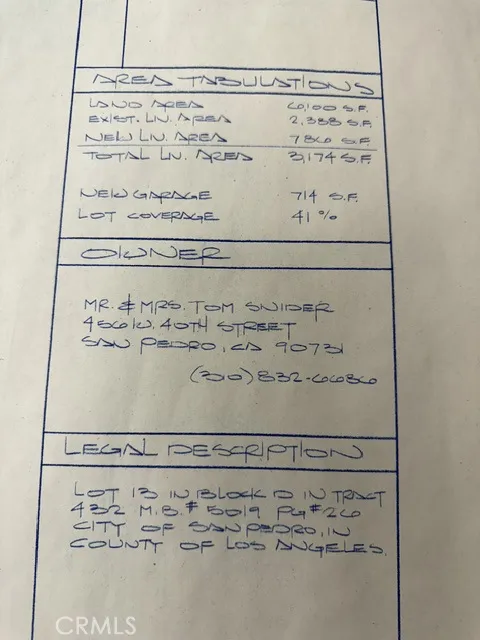 AREA TABULATIONS
LAND AREA 6,100 S.F.
EXIST. LIV. AREA 2,388 S.F.
NEW LIV. AREA 786 S.F.
TOTAL LIV. AREA 3,174 S.F.
NEW GARAGE 714 S.F.
LOT COVERAGE 41 %
OWNER
MR. & MRS. TOM SNIDER
456 W. 40TH STREET
SAN PEDRO, CA 90731
(310) 832-6686
LEGAL DESCRIPTION
LOT 13 IN BLOCK D IN TRACT
432 M.B.# 5019 PG# 26
CITY OF SAN PEDRO, IN
COUNTY OF LOS ANGELES.
CRMLS